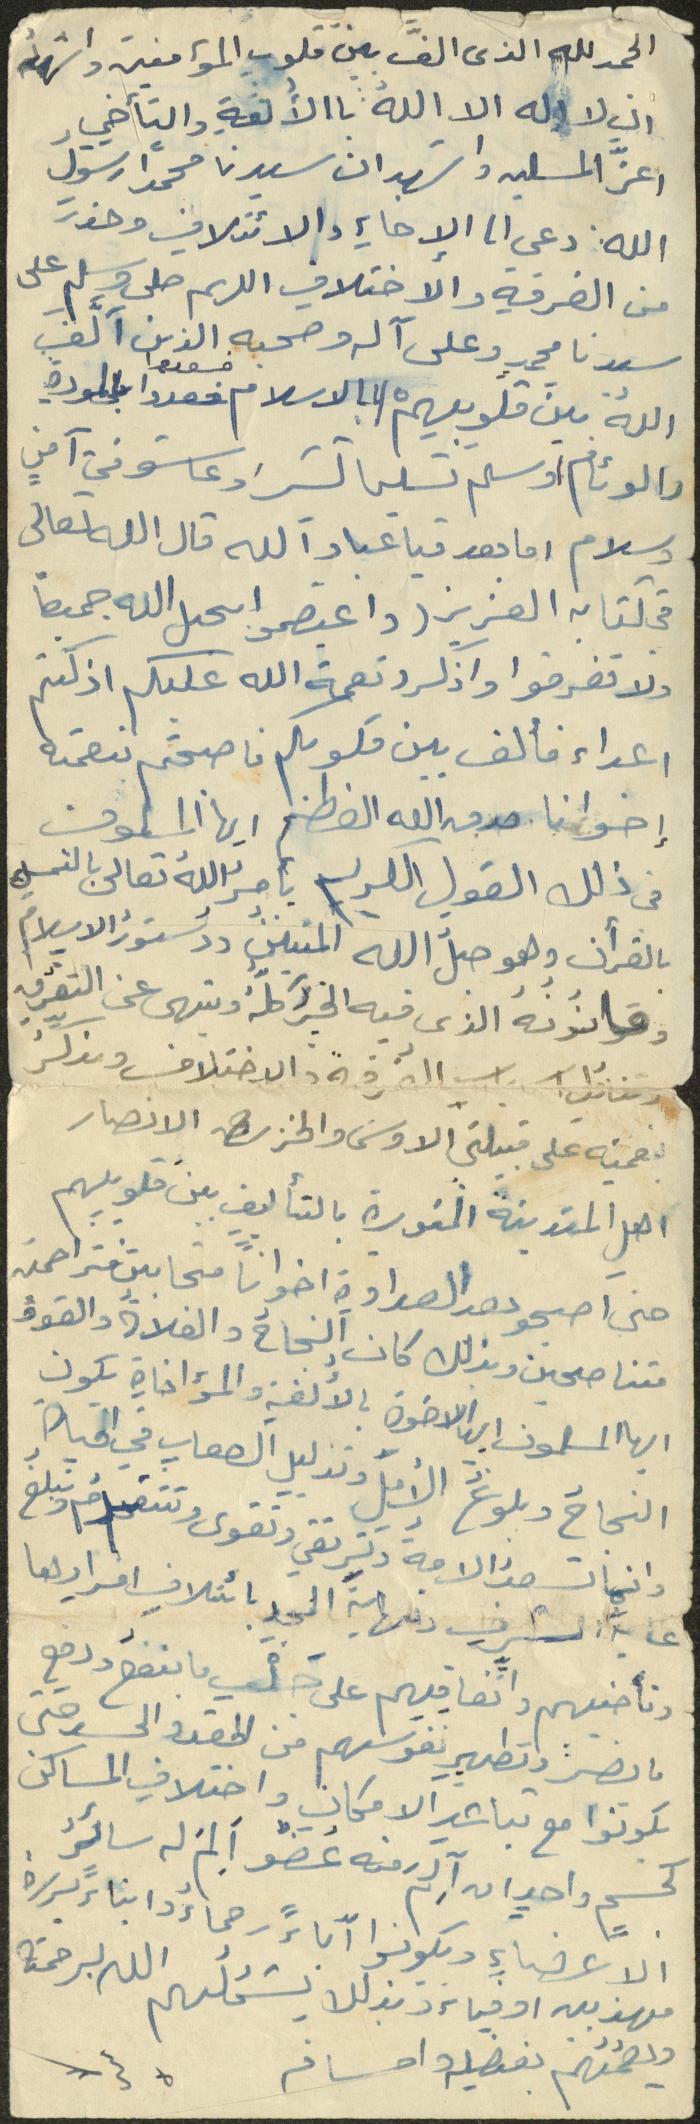 الحمد لله الذى الفَّ بين قلوب المؤمنين واشهد
ان لا اله الا اللهُ باالأُلفةِ والتأخي
اعزَّ المسلمين واشهد ان سيدنا محمدًا رسولُ
الله دعى الى الإخاءِ والائتلافِ وحذرَ
من الفرقةِ والاختلافِ اللهم صلي وسلم على
سيدنا محمدٍ وعلى آله وصحبه الذين آلَّفَ
اللهُ بين قلوبهم بالاسلام فسعدوا بالمودةِ
والوئام وسلم تسليما كثيرا وعاشو في آمنٍ
وسلام اما بعد فيا عباد الله قال الله تعالى
في كتابه العزيز (واعتصموا بحبل الله جميعًا
ولا تفرقوا واذكرو نعمة الله عليكم اذ كنتم
اعداء فألف بين قلوبكم فاصبحتم بنعمته
إخوانا صدق الله العظيم ايها المسلمون
في ذلك القول الكريم يأمرُ اللهُ تعالى بالتمسك
بالقرآن وهو حبلُ الله المتينُ ودستورُ الاسلام
وقانونُهُ الذى فيه الخيرُ كلُّهُ وينهى عن التفرقِ
والاختلاف ويذكرُ
بنعمته على قبيلتي الاوس والخزرج الانصار
اهل المدينة المنورة بالتأليف بين قلوبهم
حتى آصبحو بعد العداوة اخوانًا متحابين متراحمين
متناصحين وبذلك كان النجاحُ والفلاحُ والقوةُ
ايها المسلمون ايها الاخوة بالألفةِ والمؤاخاةِ يكون
النجاحُ وبلوغُ الأملِ وتذليل الصعاب في الحياةِ
وانما تسعدُ الامةُ وترتقي وتقوى وتتقدمُ وتبلغُ
غايةَ الشرف ونهايةَ المجدِ بائتلافِ افرادها
وتأخيهم واتفاقهم على جلبِ ما ينفعُ ودفعِ
ما يضرُ وتطهيرِ نفوسهم من الحقد والحسد حتى
يكونوا مع تباعدِ الامكانِ واختلافِ المساكن
كجسمٍ واحدٍ ان آلم منه عضوٌ آلم له سائرُ
الأعضاءِ ويكونوا آباءً رحماءَ وابناءً بررة
مهذبين اوفياء وبذلك يشملُهم الله برحمته
ويعمُّهُم بفضله واحسانه